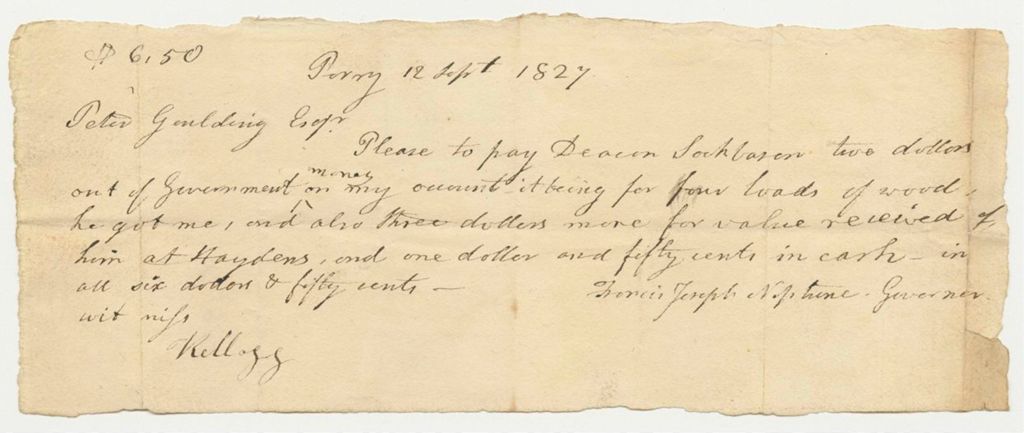 $ 6,50
Perry 12 Sept 1827
Peter Goulding Esqr
Please to pay Deacon Sockbason two dollars
out of Government money on my account it being for four loads of wood,
he got me, and also three dollars more for value received of
him at Haydens, and one doller and fifty cents in cash - in
all six dollars & fifty cents -
Francis Joseph Neptune - Governer.
witniss
Kellogg